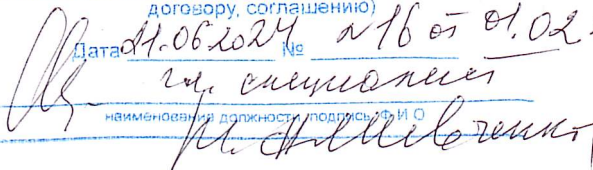 договору, соглашению)
Дата 21.06.2024 № 216 от 01.02.
гл. специалист
наименования должности, подпись, Ф И О